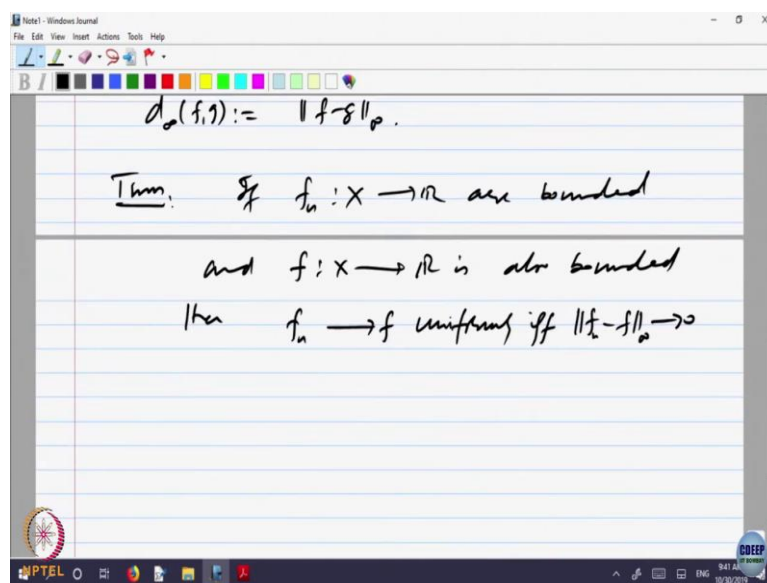 Note1 - Windows Journal
File Edit View Insert Actions Tools Help
B I
d∞(f,g) := ‖f-g‖∞.
Thm. If fₙ : X → ℝ are bounded
and f : X → ℝ is also bounded
then fₙ → f uniformly iff ‖fₙ-f‖∞ → 0
NPTEL
CDEEP
IIT BOMBAY
ENG
9:41 AM
10/30/2019